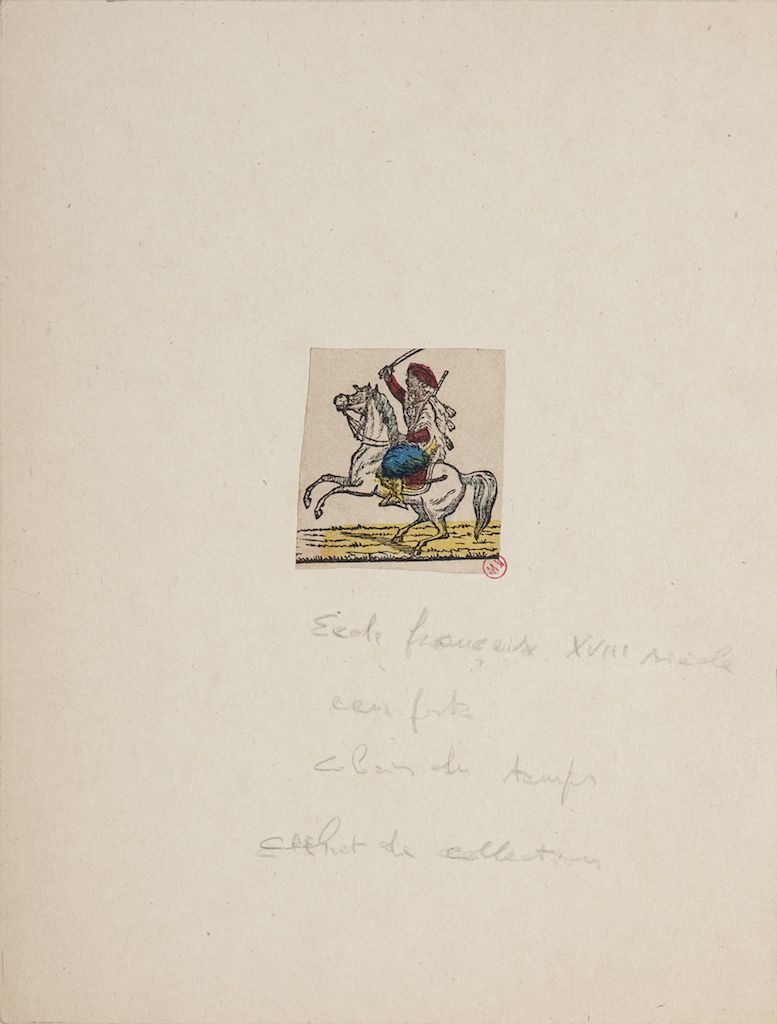 Ecole française XVIII siècle
eau forte
Coloris du temps
cachet de collection